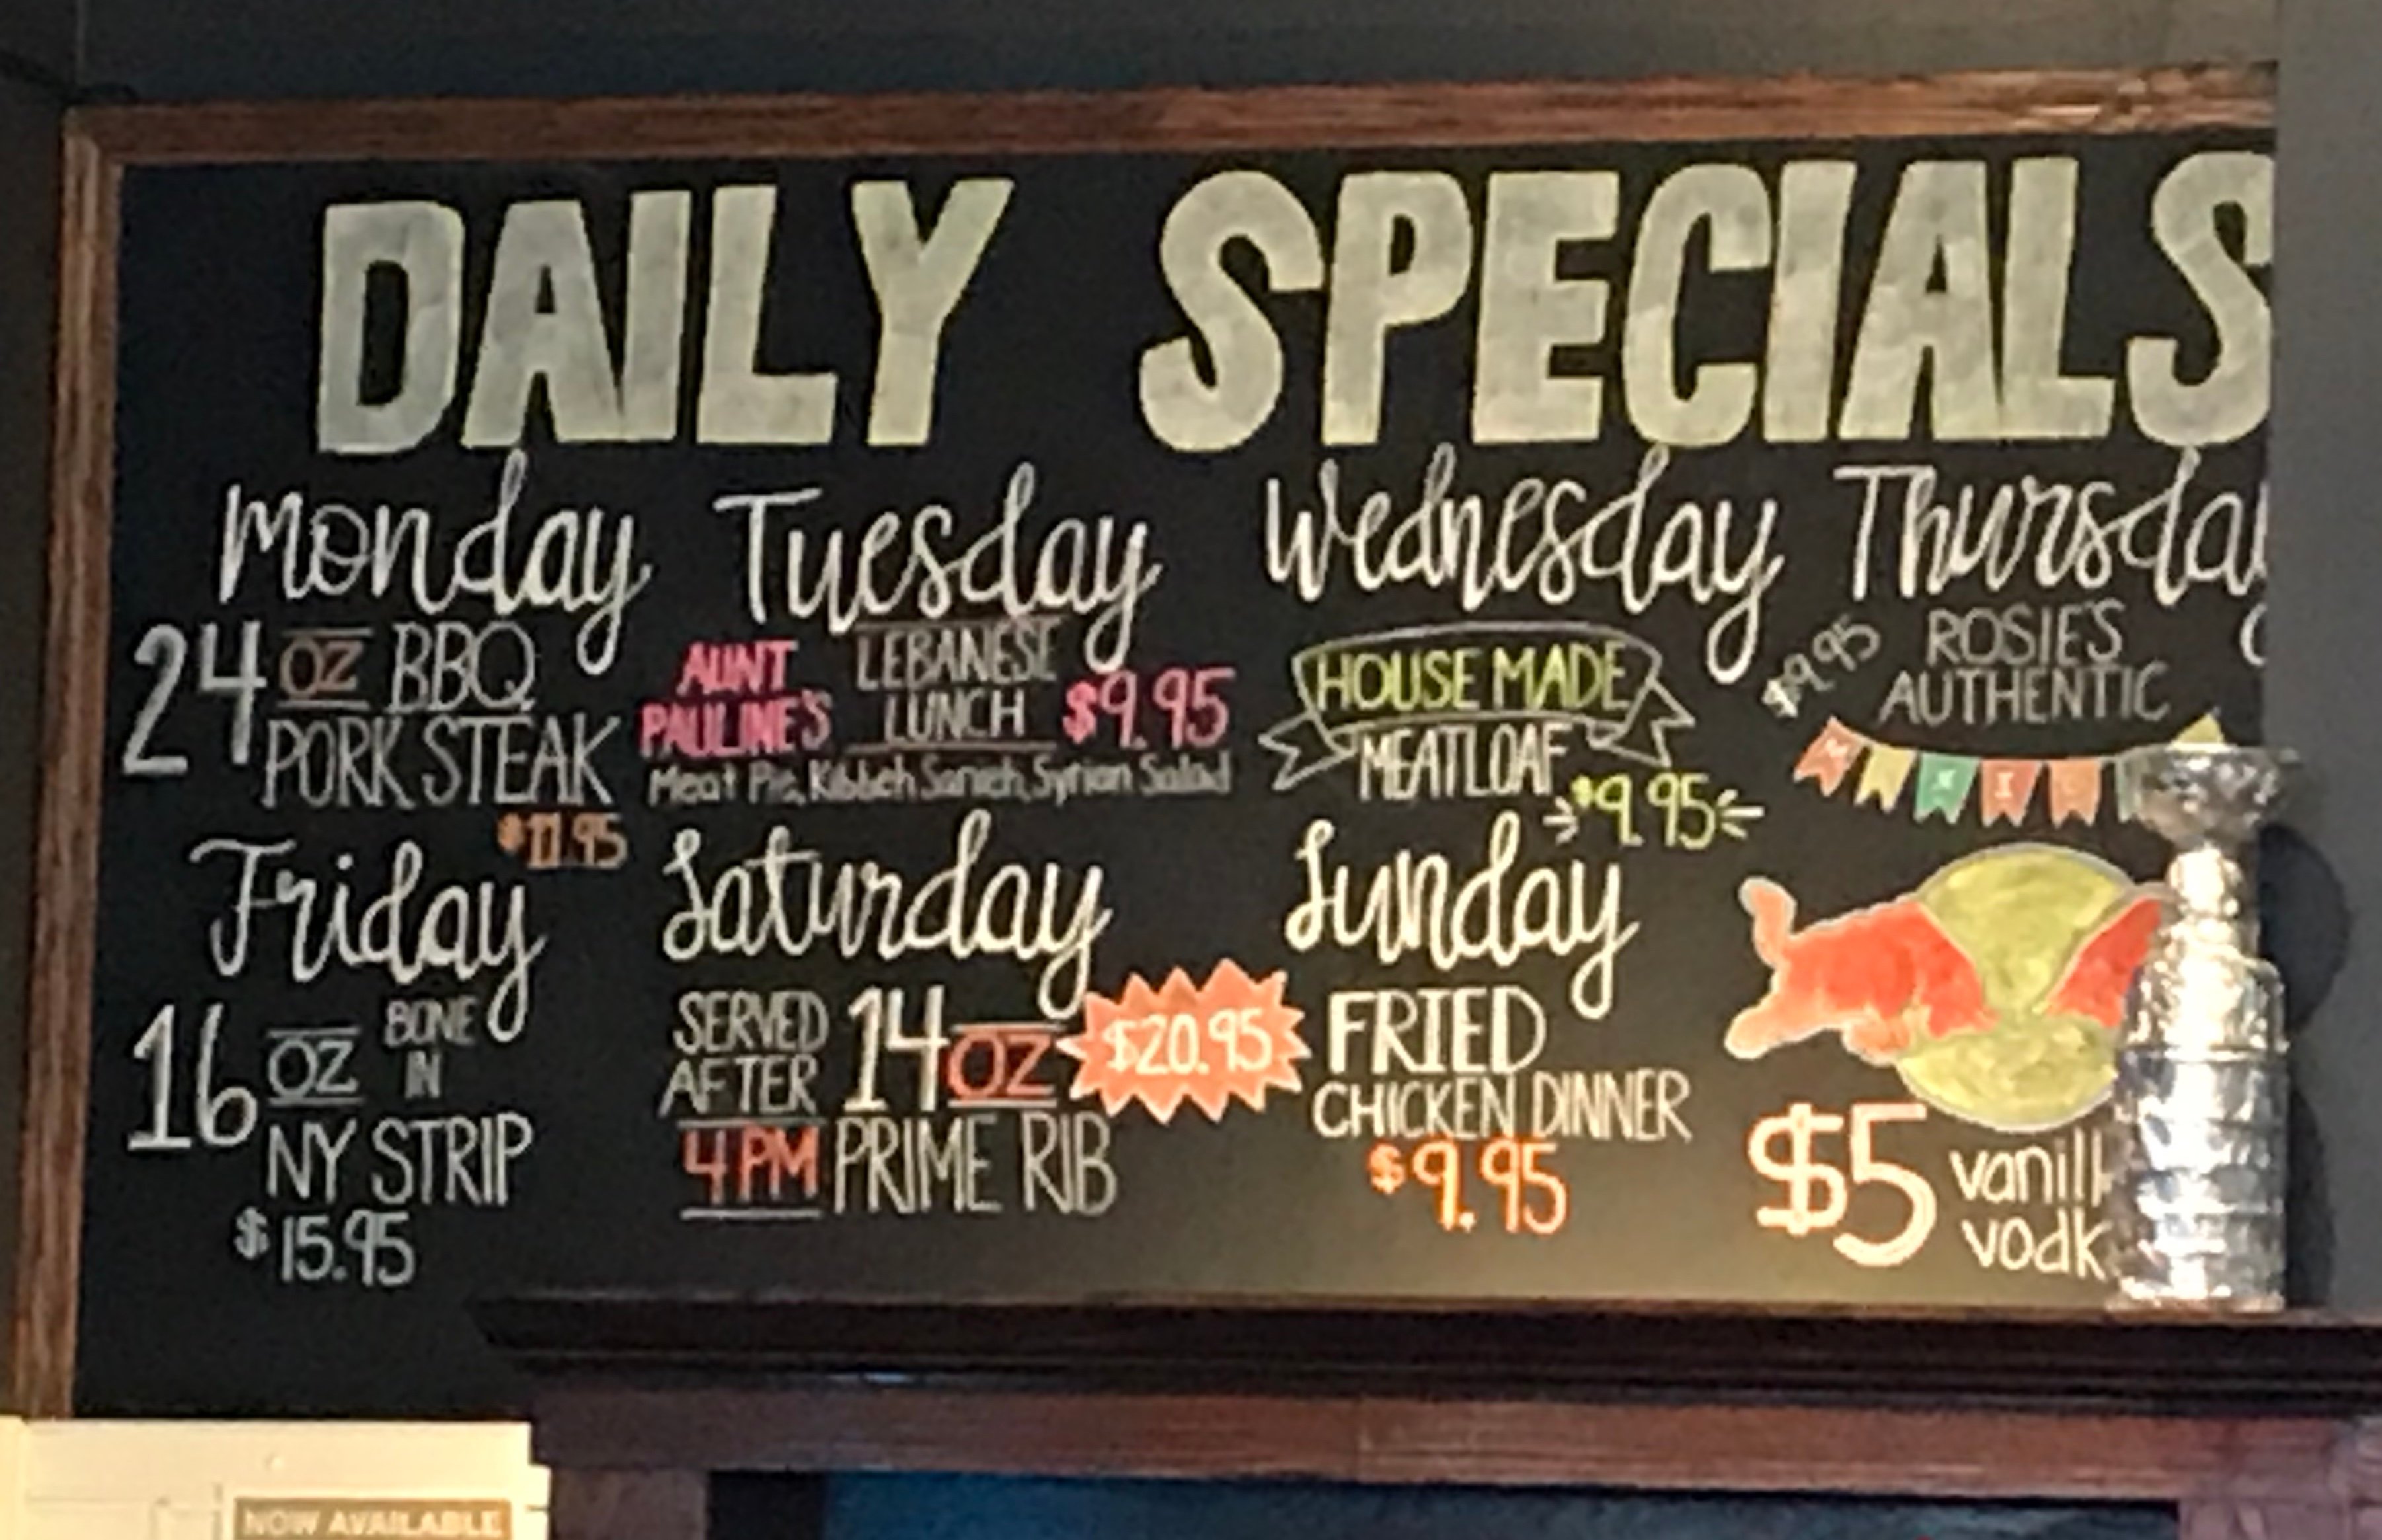 DAILY SPECIALS
Monday
24 OZ BBQ
PORK STEAK
$11.95
Tuesday
AUNT PAULINE'S
LEBANESE LUNCH
$9.95
Meat Pie, Kibbeh Sanieh, Syrian Salad
Wednesday
HOUSE MADE
MEATLOAF
$9.95
Thursday
$9.95
ROSIE'S
AUTHENTIC
Friday
16 OZ BONE IN
NY STRIP
$15.95
Saturday
SERVED AFTER
4 PM
14 OZ
PRIME RIB
$20.95
Sunday
FRIED
CHICKEN DINNER
$9.95
$5 vanill
vodk
NOW AVAILABLE